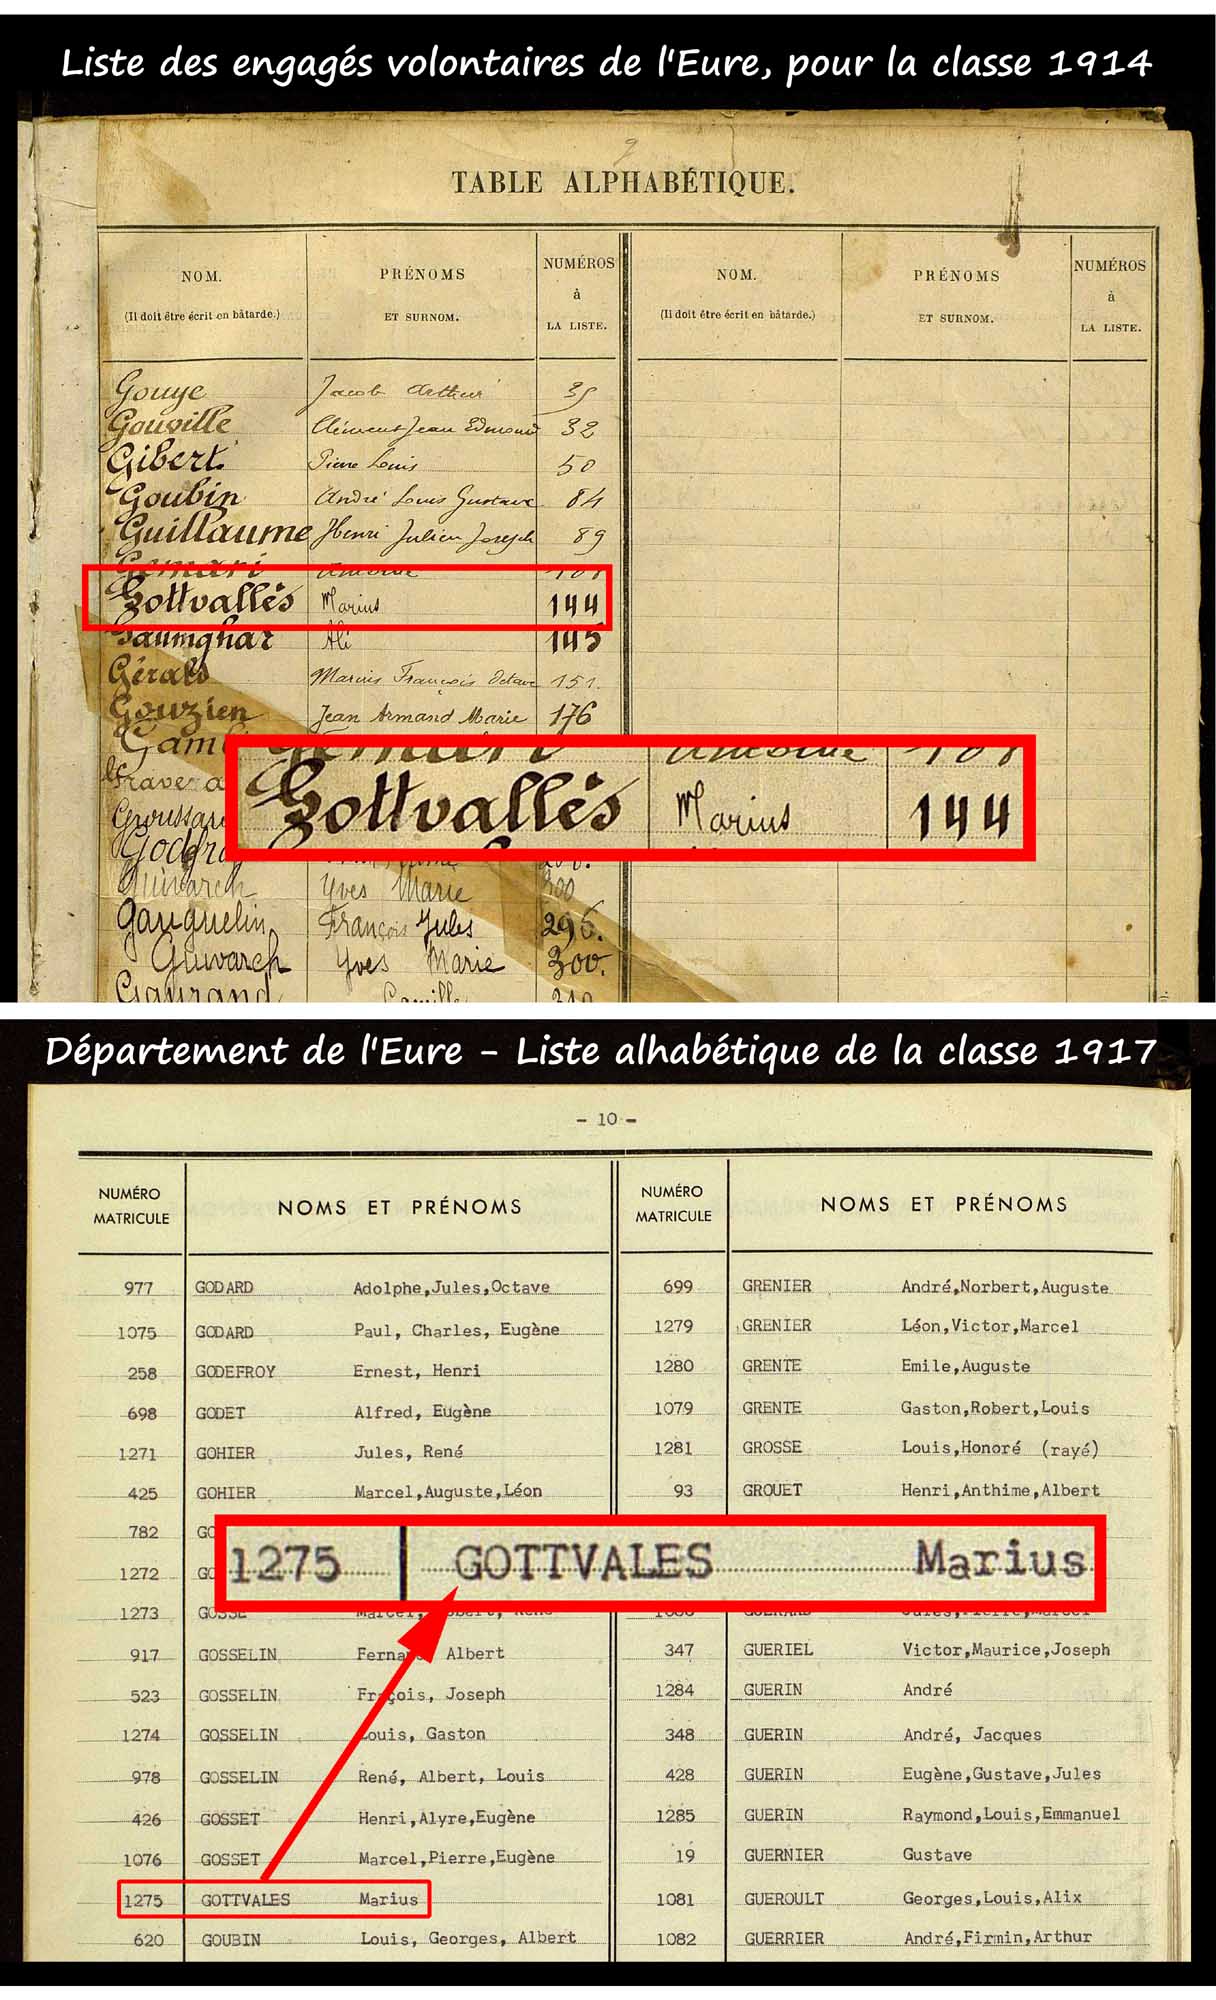 Liste des engagés volontaires de l'Eure, pour la classe 1914
2
TABLE ALPHABÉTIQUE.
NOM. PRÉNOMS NUMÉROS NOM. PRÉNOMS NUMÉROS
à à
(Il doit être écrit en bâtarde.) ET SURNOM. LA LISTE. (Il doit être écrit en bâtarde.) ET SURNOM. LA LISTE.
Gouye Jacob Arthur 35
Gouville Clément Jean Edmond 32
Gibert Pierre Louis 50
Goubin André Louis Gustave 84
Guillaume Henri Julien Joseph 89
Gemari Antoine
Gottvallès Marius 144
Gaumghar Ali 145
Gérald Marius François Octave 151.
Gouzien Jean Armand Marie 176
Gemari Antoine
Gottvallès Marius 144
Guivarch Yves Marie 300
Gauguelin François Jules 296.
Guivarch Yves Marie 300.
Gaurand Camille 310
Département de l'Eure - Liste alhabétique de la classe 1917
- 10 -
NUMÉRO MATRICULE NOMS ET PRÉNOMS NUMÉRO MATRICULE NOMS ET PRÉNOMS
977 GODARD Adolphe,Jules,Octave 699 GRENIER André,Norbert,Auguste
1075 GODARD Paul, Charles, Eugène 1279 GRENIER Léon,Victor,Marcel
258 GODEFROY Ernest, Henri 1280 GRENTE Emile,Auguste
698 GODET Alfred, Eugène 1079 GRENTE Gaston,Robert,Louis
1271 GOHIER Jules, René 1281 GROSSE Louis,Honoré (rayé)
425 GOHIER Marcel,Auguste,Léon 93 GROUET Henri,Anthime,Albert
782 GO
1275 GOTTVALES Marius
1272 GO
1273 GOSSE Marcel, Robert, René GUERARD Jules,Pierre,Marcel
917 GOSSELIN Albert 347 GUERIEL Victor,Maurice,Joseph
523 GOSSELIN Joseph 1284 GUERIN André
1274 GOSSELIN Louis, Gaston 348 GUERIN André, Jacques
978 GOSSELIN René, Albert, Louis 428 GUERIN Eugène,Gustave,Jules
426 GOSSET Henri,Alyre,Eugène 1285 GUERIN Raymond,Louis,Emmanuel
1076 GOSSET Marcel,Pierre,Eugène 19 GUERNIER Gustave
1275 GOTTVALES Marius 1081 GUEROULT Georges,Louis,Alix
620 GOUBIN Louis, Georges, Albert 1082 GUERRIER André,Firmin,Arthur